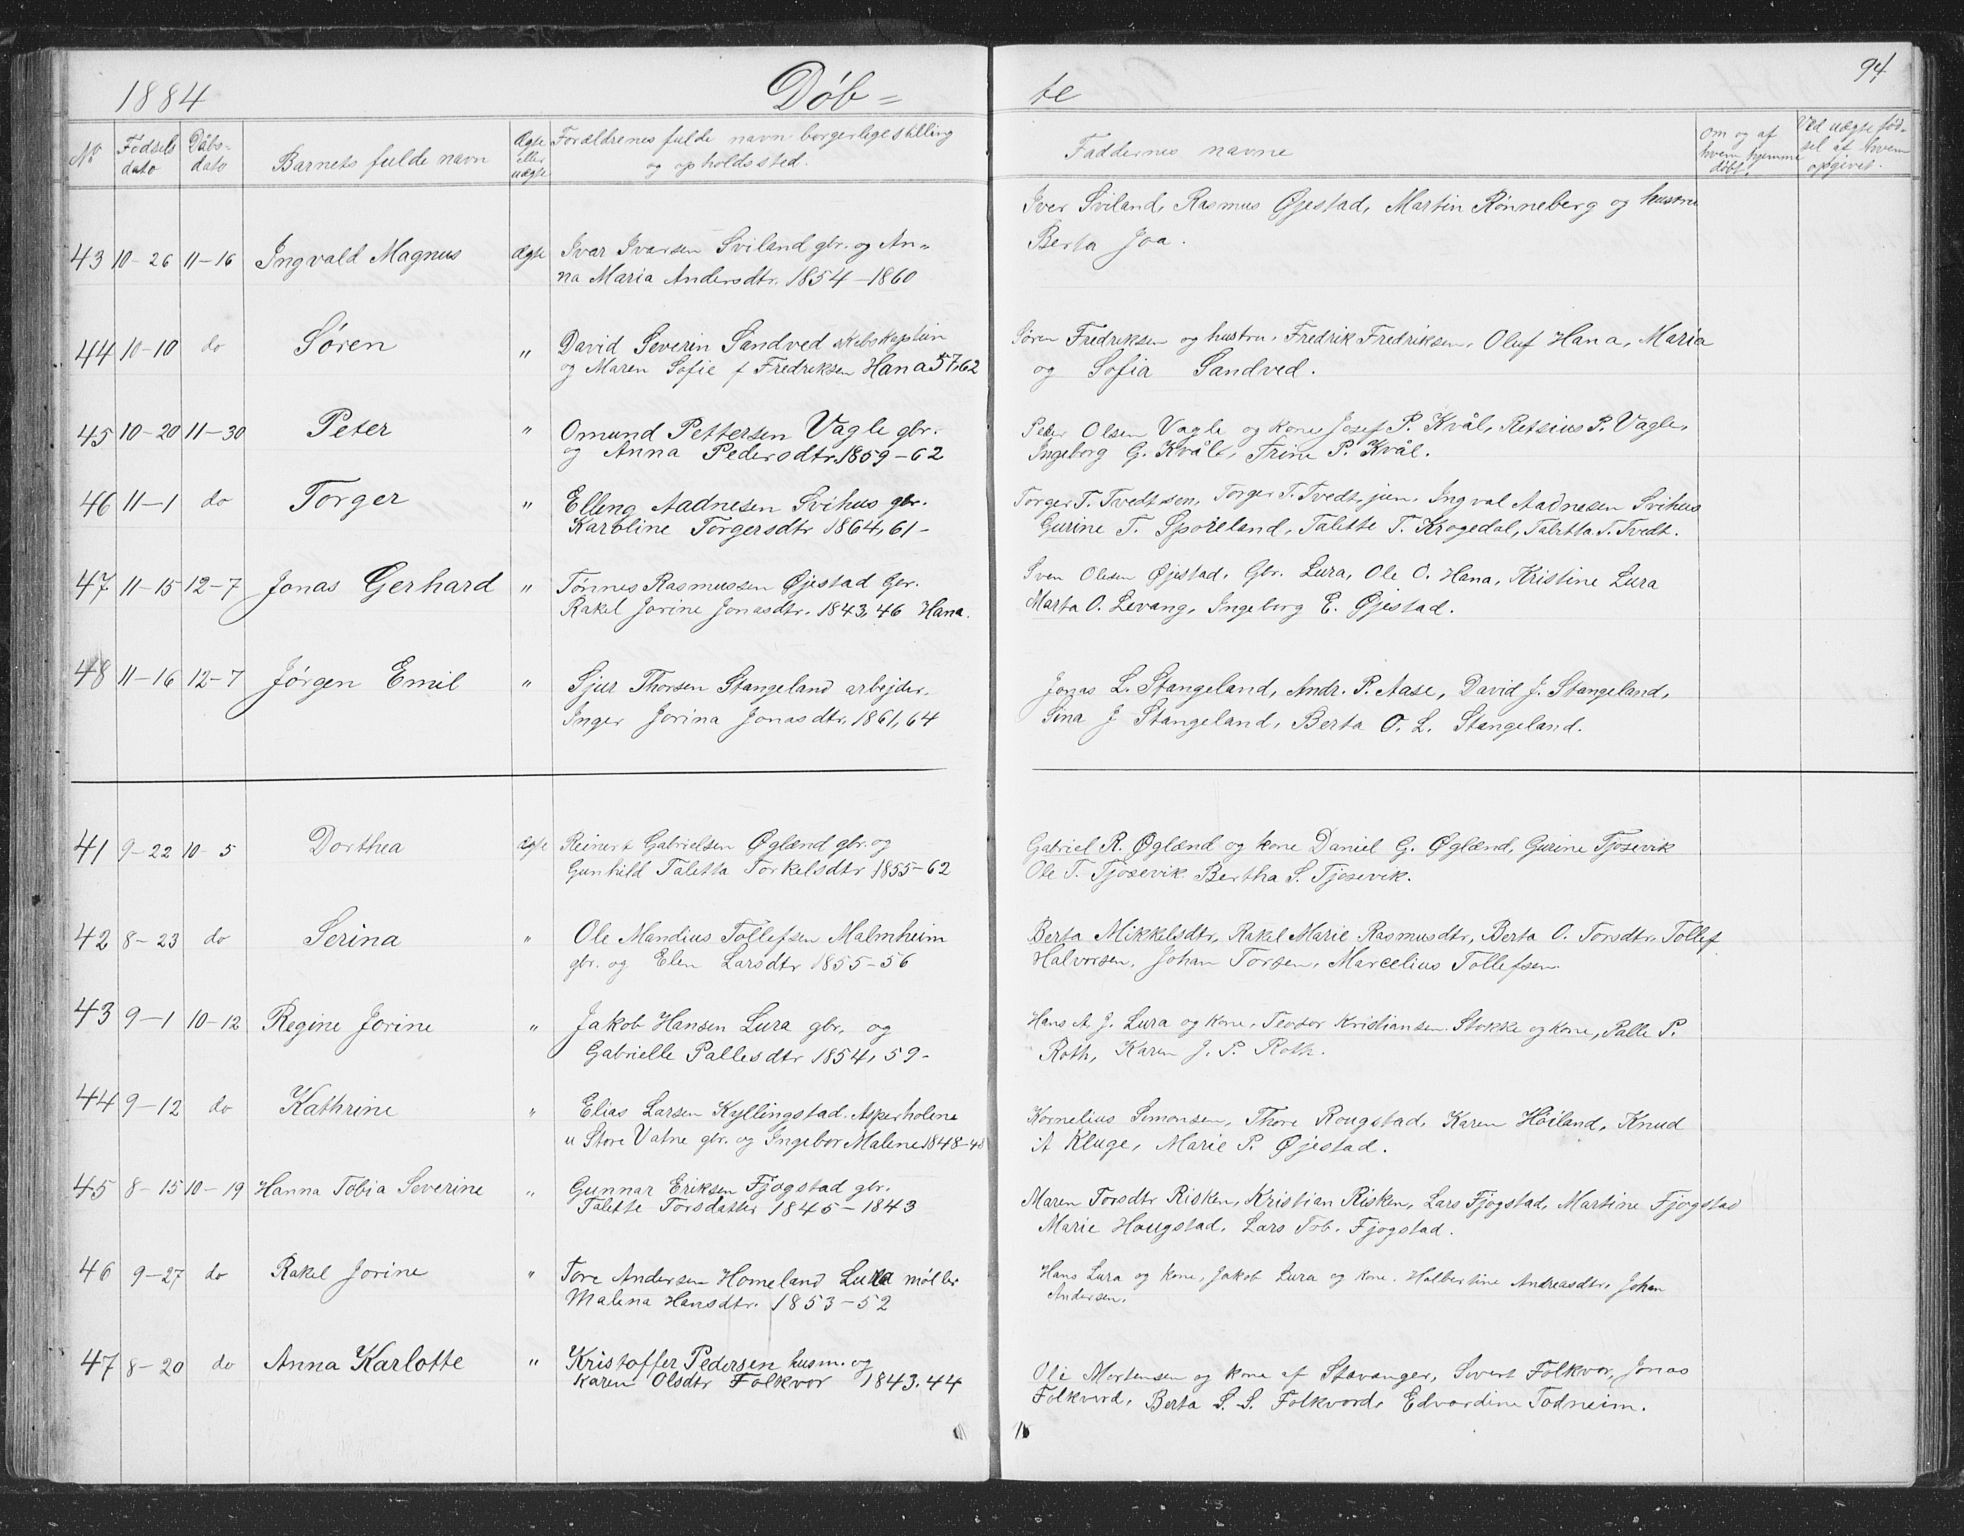 1884 Døb=
te 94
No Fødsels dato Dåbs- dato Barnets fulde navn Ægte eller uægte Forældrenes fulde navn borgerlige stilling og opholdssted.
Faddernes navne Om og af hvem hjemme døbt. Ved uægte fød- sel at hvem opgivet.
43 10-26 11-16 Ingvald Magnus ægte Ivar Ivarsen Sviland gbr. og An-
na Maria Andersdtr. 1854-1860
Iver Sviland, Rasmus Øjestad, Martin Rønneberg og hustru
Berta Joa.
44 10-10 do Søren " David Severin Sandved skibskaptein
og Maren Sofie f Fredriksen Hana 57,62
Søren Fredriksen og hustru, Fredrik Fredriksen, Oluf Hana, Maria
og Sofia Sandved.
45 10-20 11-30 Peter " Omund Pettersen Vagle gbr.
og Anna Pedersdtr. 1859-62
Peder Olsen Vagle og kone Josef P. Kvål, Retsius P. Vagle,
Ingeborg G. Kvål, Trine P. Kvål.
46 11-1 do Torger " Elling Aadnesen Svihus gbr.
Karoline Torgersdtr 1864,61-
Torger T. Tvedtsen, Torger T. Tvedt, jun. Ingval Aadnesen Svihus
Gurine T. Sporeland, Talette T. Krogedal, Talitta T. Tvedt.
47 11-15 12-7 Jonas Gerhard " Tønnes Rasmussen Øjestad Gbr.
Rakel Jorine Jonasdtr. 1843,46 Hana.
Sven Olesen Øjestad, Gbr. Lura, Ole O. Hana, Kristine Lura
Marta O. Levang, Ingeborg E. Øjestad.
48 11-16 12-7 Jørgen Emil " Sjur Thorsen Stangeland arbejder.
Inger Jorina Jonasdtr, 1861,64
Jonas L. Stangeland, Andr. P. Aase, David J. Stangeland,
Sina J Stangeland, Berta O. L. Stangeland.
41 9-22 10-5 Dorthea ægte Reinert Gabrielsen Øglænd gbr. og
Gunhild Taletta Torkelsdtr 1855-62
Gabriel R. Øglænd og kone Daniel G. Øglænd, Gurine Tjosevik
Ole T. Tjosevik Bertha S. Tjosevik.
42 8-23 do Serina " Ole Mandius Tollefsen Malmheim
gbr. og Elen Larsdtr 1855-56
Berta Mikkelsdtr, Rakel Marie Rasmusdtr, Berta O. Torsdtr, Tollef
Halvorsen, Johan Torsen, Marcelius Tollefsen.
43 9-1 10-12 Regine Jorine " Jakob Hansen Lura gbr, og
Gabrielle Pallesdtr 1854,59-
Hans A J. Lura og kone, Teodor Kristiansen Stokke og kone, Palle P.
Roth, Karen J. P. Roth.
44 9-12 do Kathrine " Elias Larsen Kyllingstad Asperholene
u Store Vatne gbr. og Ingebor Maline 1848-48
Kornelius Simonsen, Thore Rougstad, Karen Høiland, Knud
A Kluge, Marie P. Øjestad.
45 8-15 10-19 Hanna Tobia Severine " Gunnar Eriksen Fjogstad gbr.
Talette Torsdatter 1845-1843
Maren Torsdtr Risken, Kristian Risken, Lars Fjogstad, Martine Fjogstad
Marie Hougstad, Lars Tob. Fjogstad.
46 9-27 do Rakel Jorine " Tore Andersen Homeland Lura møller
Malena Hansdtr. 1853-52
Hans Lura og kone, Jakob Lura og kone. Halbertine Andreasdtr, Johan
Andersen.
47 8-20 do Anna Karlotte " Kristoffer Pedersen husm. og
Karen Olsdtr Folkvor 1843.44
Ole Mortensen og kone af Stavanger, Sivert Folkvor, Jonas
Folkvord, Berta S. S. Folkvord, Edvardine Todneim.